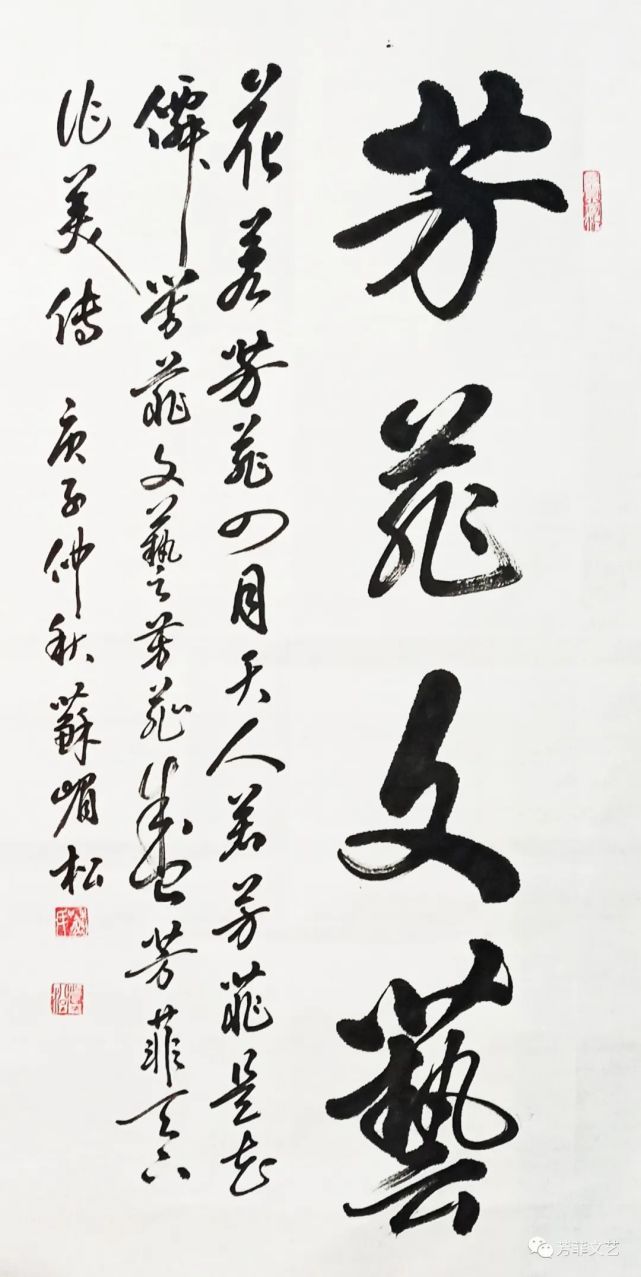 芳菲文藝
花若芳菲四月天人若芳菲是花
僊芳菲文藝芳菲芳菲天下
作美傳 庚子仲秋蘇嵋松
芳菲文艺